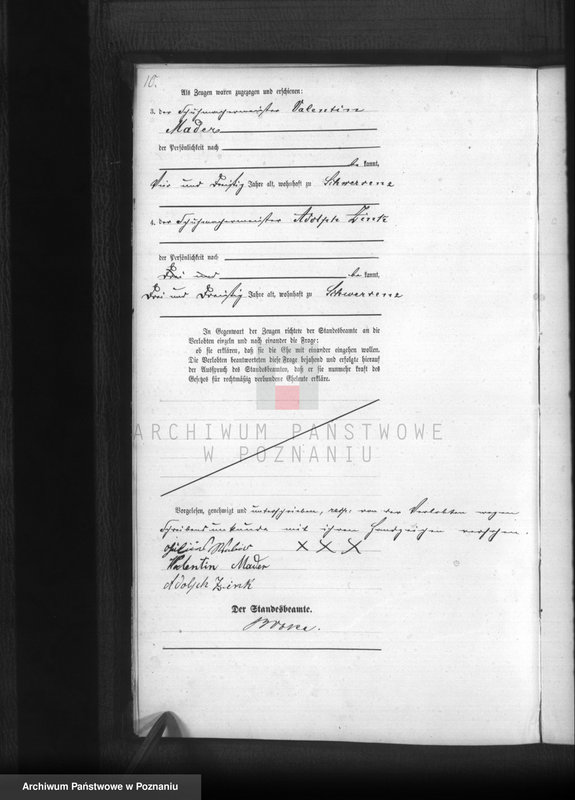 10.
Als Zeugen waren zugezogen und erschienen:
3. der Schuhmachermeister Valentin
Mader
der Persönlichkeit nach
be kannt,
Vier und dreißig Jahre alt, wohnhaft zu Schwersenz
4. der Schuhmachermeister Adolph Zink
der Persönlichkeit nach
Drei und be kannt,
Drei und Dreißig Jahre alt, wohnhaft zu Schwersenz
In Gegenwart der Zeugen richtete der Standesbeamte an die
Verlobten einzeln und nach einander die Frage:
ob sie erklären, daß sie die Ehe mit einander eingehen wollen.
Die Verlobten beantworteten diese Frage bejahend und erfolgte hierauf
der Ausspruch des Standesbeamten, daß er sie nunmehr kraft des
Gesetzes für rechtmäßig verbundene Eheleute erkläre.
ARCHIWUM PAŃSTWOWE
W POZNANIU
Vorgelesen, genehmigt und unterschrieben, resp. von der Verlobten wegen
Schreibensunkunde mit ihrem Handzeichen versehen.
Julius XXX
Valentin Mader
Adolph Zink
Der Standesbeamte.
Archiwum Państwowe w Poznaniu